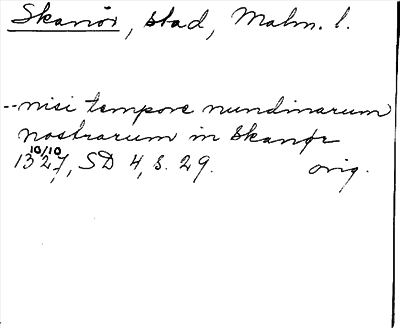 Skanör, stad, Malm. l.
--nisi tempore nundinarum
nostrarum in Skanør
10/10
1327, SD 4, s. 29. orig.